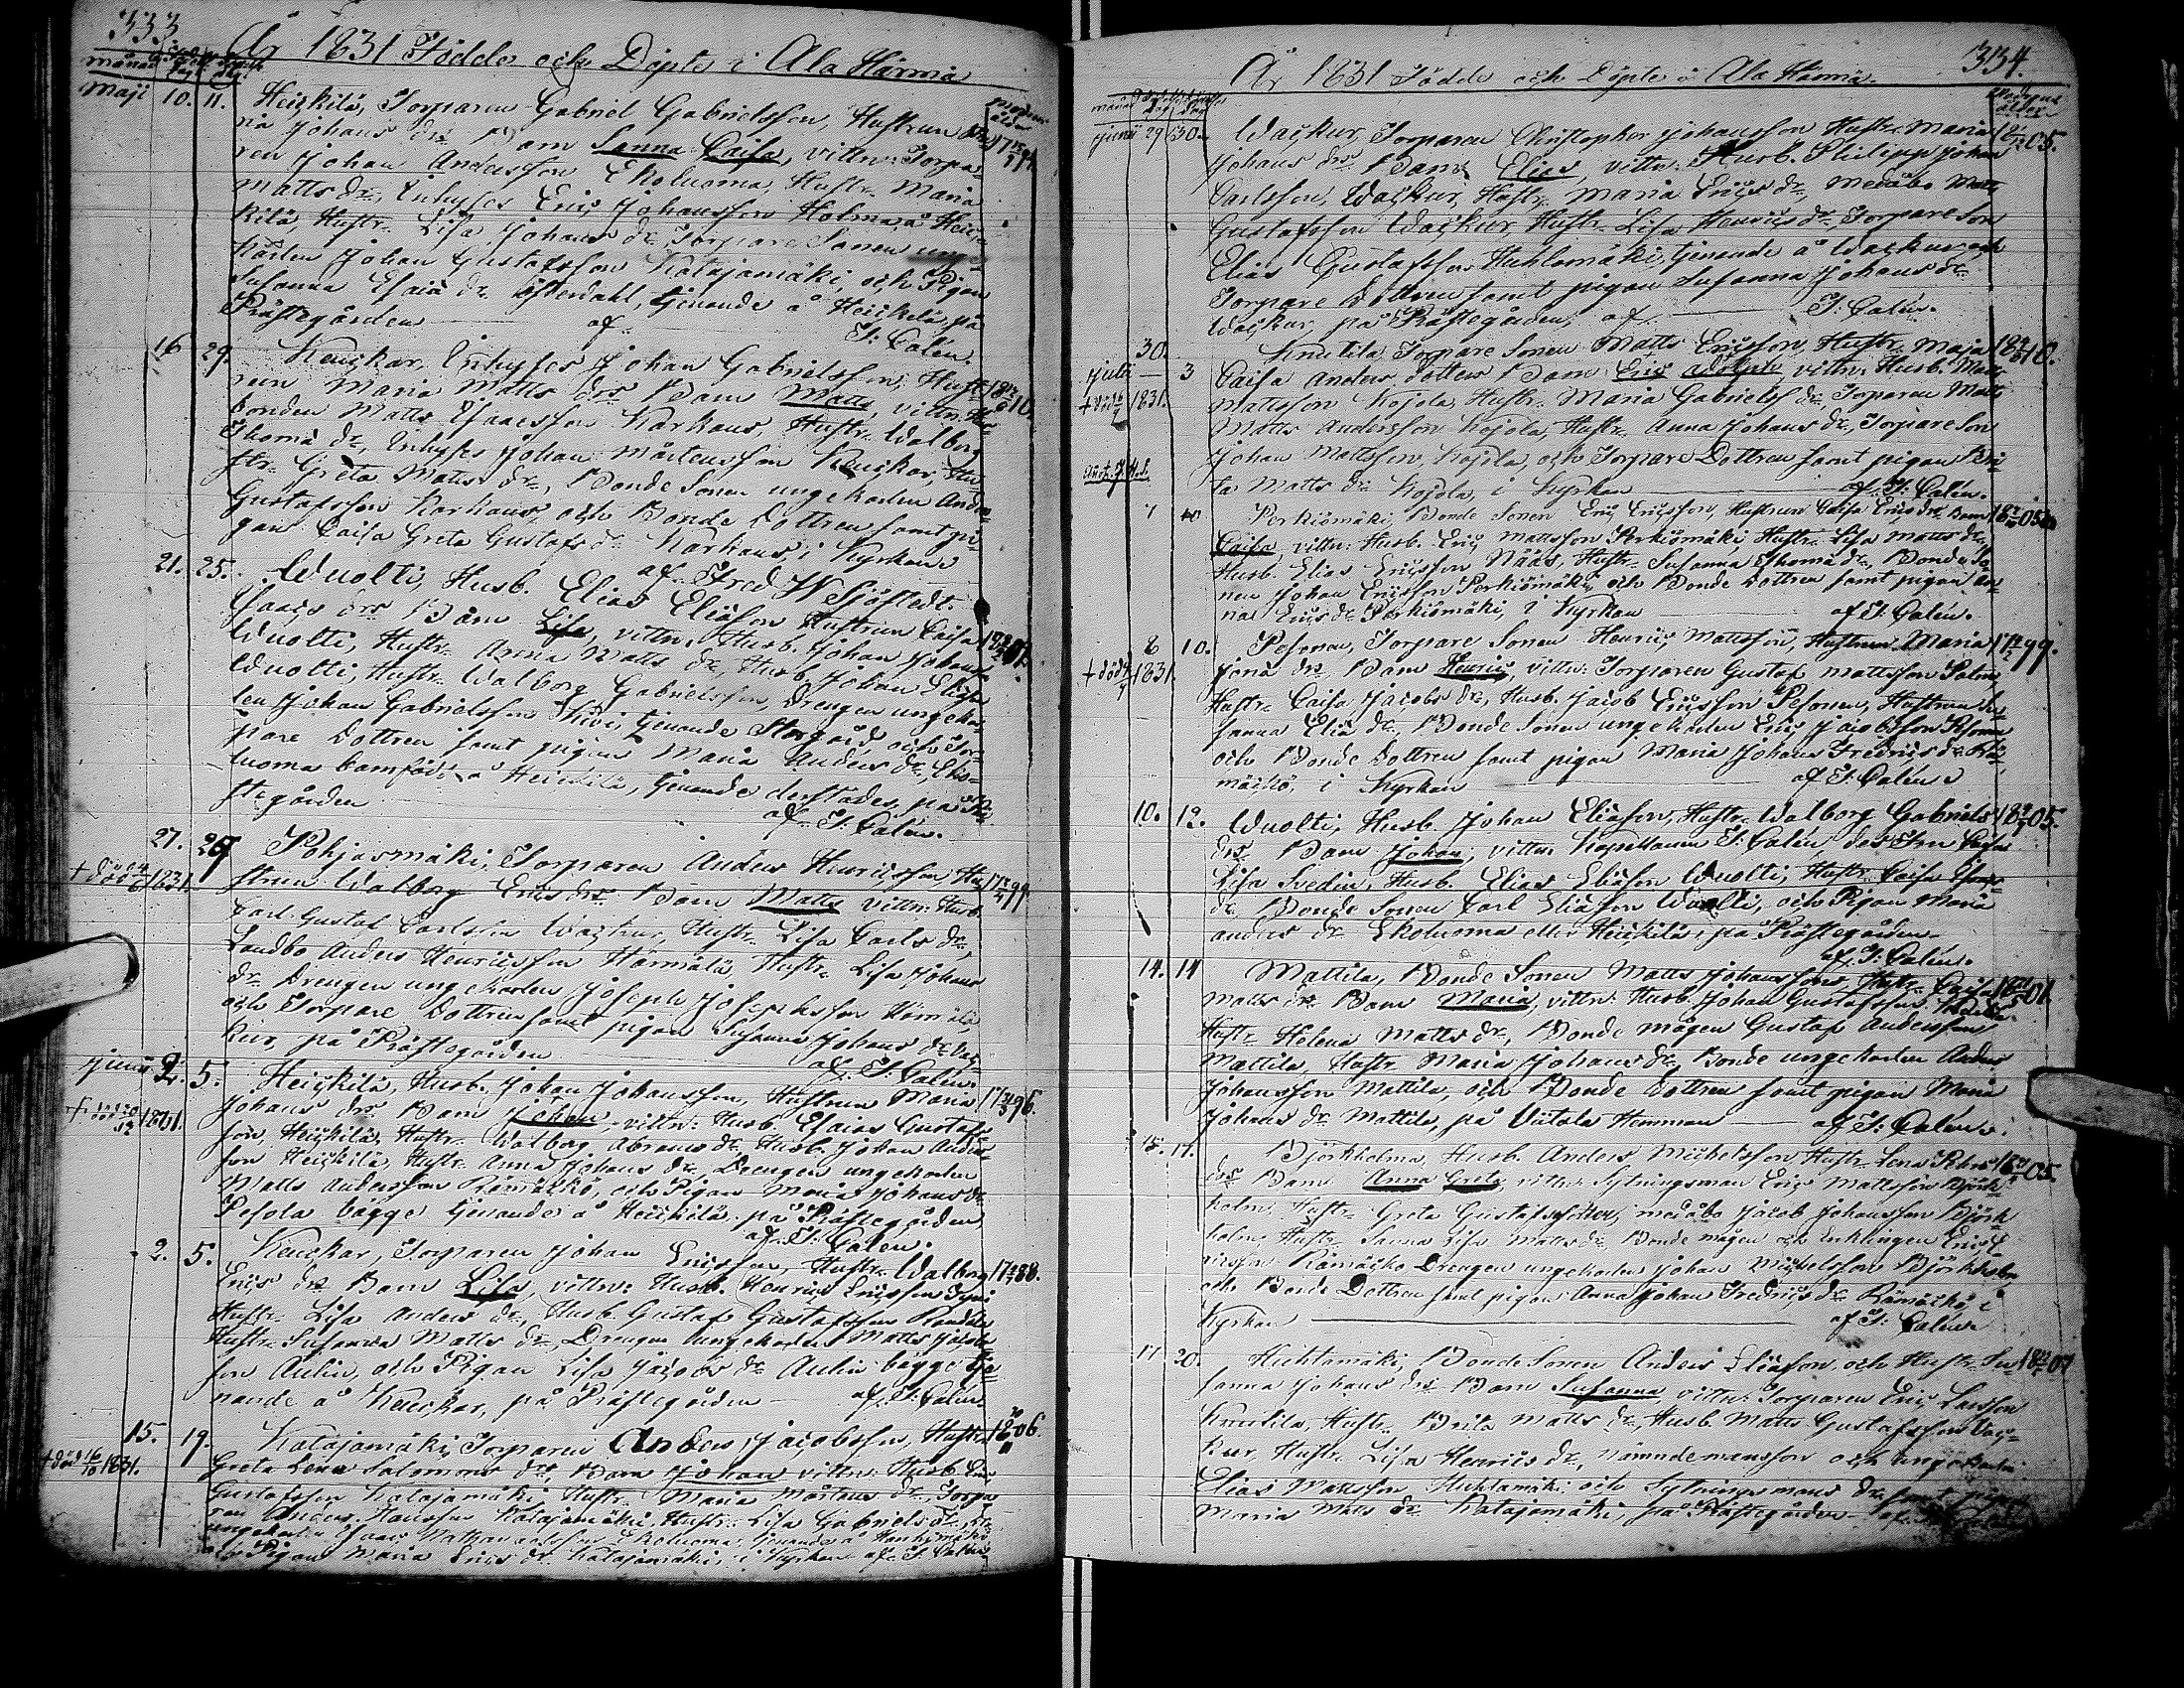 333
År 1831 Födde och Döpte i Ala Härmä
Maji 10. 11. Heickilä, Torparen Gabriel Gabrielsson, Hustrun
ria Johans dr Barn Sanna Caisa, vittn: Torpa-
ren Johan Andersson Ekoluoma, Hustr. Maria
Matts dr, Inhyses Eric Johansson Holmar, å Heic-
kilä, Hustr. Lisa Johans dr, Torpare Sonen unge
Karlen Johan Gustafsson Katajamäki, och Pigan
Susanna Esaiä dr Österdahl, tjenande å Heickilä, på
Prästegården af J: Calén.
16 29. Keuckar, Inhyses Johan Gabrielsson, Hust-
run Maria Matts drs Barn Matts, vittn:
bonden Matts Isaacsson Karhaus Hustr. Walborg
Thomä dr, Inhyses Johan Mårtensson Keuckar, Hu-
str. Greta Matts dr, Bonde Sonen ungekarlen Anders
Gustafsson Karhaus, och Bonde Dottren samt pi-
gan Caisa Greta Gustafs dr Karhaus, i Kyrkan
af Fred W Sjöstedt.
21. 25. Wuolti, Husb. Elias Eliäson Hustrun Caisa
Isaacs drs Barn Lisa, vittn: Husb. Johan Johans
Wuolti, Hustr. Anna Matts dr, Husb. Johan Eliäson
Wuolti, Hustr. Walborg Gabrielsson, Drengen ungekar-
len Johan Gabrielsson Kivi, tjenande Storgård, och Tor-
pare Dottren samt pigan Maria Anders dr, Eko-
luoma barnföd å Heickilä, tjenande derstädes, på Prä-
stegården af J: Calén.
27. 29 Pohjasmäki, Torparen Anders Henricsson, Hu-
strun Walborg Erics drs Barn Matts vittn: Husb.
Carl Gustaf Carlsson Wackur, Hustr. Lisa Carls dr,
Landbo Anders Henricsson Härmälä, Hustr. Lisa Johans
dr, Drengen ungekarlen Joseph Josephsson Härmälä
och Torpare Dottren samt pigan Susanna Johans dr Wac-
kur, på Prästegården af J: Calén.
Junii 2. 5. Heickilä, Husb. Johan Johansson, Hustrun Maria 96.
Johans drs Barn Johan vittn: Husb. Esaias Gustafs
son, Heickilä, Hustr. Walborg Abrams dr, Husb. Johan Anders
son Heickilä, Hustr. Anna Johans dr, Drengen ungekarlen
Matts Andersson Rämäckö, och Pigan Maria Johans dr
Pesola bägge tjenande å Heickilä, på Prästegården
af J: Calén.
2. 5. Keuckar, Torparen Johan Ericsson, Hustr. Walborg 88.
Erics drs Barn Lisa, vittn: Husb. Henric Ericsson
Hustr. Lisa Anders dr, Husb. Gustaf Gustafsson
Hustr. Susanna Matts dr, Drengen ungekarlen Matts Jacobs
son Aulin, och Pigan Lisa Jacobs dr Aulin bägge tje-
nande å Keuckar, på Prästegården af J: Calén.
15. 19. Katajamäki, Torparen Anders Jacobsson, Hustr. 06.
död 16/10 1831. Greta Lena Salomons drs, Barn Johan vittn: Husb. Eric
Gustafsson Katajamäki Hustr. Maria Mårtens dr, Torpa
ren Anders Hansson Katajamäki, Hustr. Lisa Gabriels dr,
ungekarlen Isaac Ekoluoma, tjenande å
och Pigan Maria Erics dr Katajamäki, i Kyrkan af J: Calén
334.
År 1831 Födde och Döpte i Ala Härmä.
Junii 29 30. Wackur, Torparen Christopher Johansson Hustr. Maria 05.
Johans drs Barn Elias, vittn: Husb. Philipp Johan
Carlsson, Wackur, Hustr. Maria Erics dr, Medåbo Matts
Gustafsson Wackur Hustr. Lisa Henrics dr, Torpare Son
Elias Gustafsson Huhtamäki, tjenande å Wackur och
Torpare Dottren samt pigan Susanna Johans dr
Wackur, på Prästegården, af J: Calén.
30. Knutila Torpare Sonen Matts Ericsson, Hustr. Maja 10.
Julii 3 Caisa Anders dotters Barn Eric Adolph, vittn: Husb. Matts
1831. Mattsson Kojola, Hustr. Maria Gabriels dr, Torparen Matts
Matts Andersson Kojola, Hustr. Anna Johans dr, Torpare Son
Johan Mattsson, Kojola, och Torpare Dottren samt pigan Bri
ta Matts dr Kojola, i Kyrkan af J: Calén.
7 10 Perkiömäki, Bonde Sonen Eric Ericsson, Hustrun Caisa Erics drs Barn 05
Caisa, vittn: Husb. Eric Mattsson Perkiömäki, Hustr. Lisa Matts dr,
Husb. Elias Ericsson Nääs, Hustr. Susanna Thomä dr, Bonde So-
nen Johan Ericsson Perkiömäki, och Bonde Dottren samt pigan An-
na Erics dr Perkiömäki, i Kyrkan af J: Calén.
8 10. Pesonen, Torpare Sonen Henric Mattsson, Hustrun Maria 99.
1831. Jonä drs Barn Henric, vittn: Torparen Gustaf Mattsson
Hustr. Caisa Jacobs dr, Husb. Jacob Ericsson Pesonen, Hustrun Su-
sanna Eliä dr, Bonde Sonen ungekarlen Eric Jacobsson Pesonen
och Bonde Dottren samt pigan Maria Johans Fredrics dr Rä-
mäckö, i Kyrkan af J: Calén
10. 12. Wuolti, Husb. Johan Eliäson, Hustr. Walborg Gabriels 05.
drs Barn Johan, vittn: Kapellanen J: Calén, dess Fru Caisa
Lisa Svedin, Husb. Elias Eliäson Wuolti, Hustr. Caisa Isaacs
dr Bonde Sonen Carl Eliäson Wuolti, och Pigan Maria
Anders dr Ekoluoma eller Heickilä, på Prästegården
af J: Calén.
14. 14 Mattila, Bonde Sonen Matts Johansson, Hustr. Caisa 01.
Matts drs Barn Maria, vittn: Husb. Johan Gustafsson
Hustr. Helena Matts dr, Bonde mågen Gustaf Andersson
Mattila, Hustr. Maria Johans dr, Bonde ungekarlen Anders
Johansson Mattila, och Bonde Dottren samt pigan Maria
Johans dr Mattila, på Viitala Hemman af J: Calén.
15. 17. Björkholma, Husb. Anders Michelsson Hustr. Lena Pehrs 05.
drs Barn Anna Greta, vittn: Sytningsman Eric Mattsson Björk
holm, Hustr. Greta Gustafsdotter, medåbo Jacob Johansson Björk
holm, Hustr. Sanna Lisa Matts dr, Bonde mågen och Enklingen Eric E
ricsson Rämäckö Drengen ungekarlen Johan Michelsson Björkholm
och Bonde Dottren samt pigan Anna Johan Fredrics dr Rämäckö, i
Kyrkan af J: Calén
17 20. Huhtamäki, Bonde Sonen Anders Eliäson, och Hustr. Su 07
sanna Johans drs Barn Susanna, vittn: Torparen Eric Larsson
Knutila, Hustr. Brita Matts dr, Husb. Matts Gustafsson Wac-
kur, Hustr. Lisa Henrics dr, Nämndemansson och ungekarlen
Elias Mattsson Huhtamäki och Sytningsmans dr samt pigan
Maria Matts dr Katajamäki, på Prästegården af J: Calén